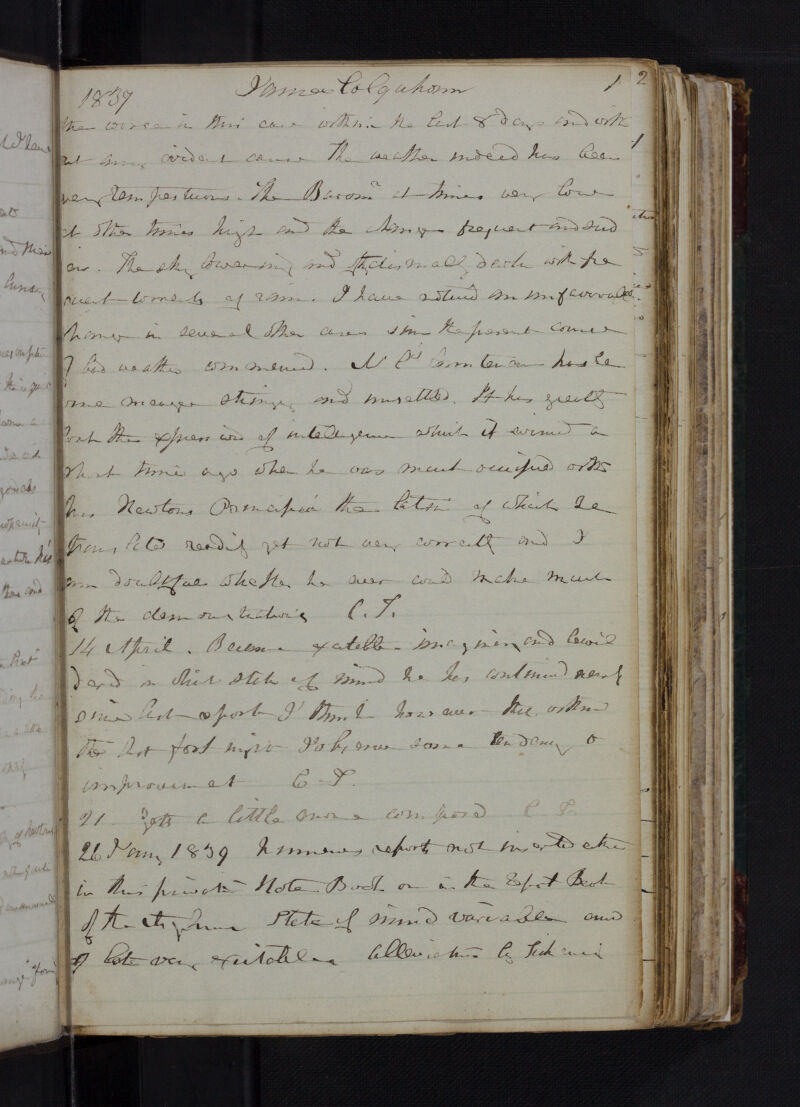 1837 James Colquhoun 1
the worse in this case within the last 8 days and with
out any evident cause The weather indeed has been
very tempestuous. The Barom^r at times very low
at other times high and the changes frequent and sud
en. The sky lowering and dismally dark with fre
quent torrents of rain. I have noticed an unfavourable
change in several other cases since the present course
of bad weather commenced. M^r C^s Countenance has be
come meagre and unsettled. It has greatly
lost the expression of intelligence which it evinced a
short time ago when he was much occupied with
his Newtons Principia the latin of which he
translated readily yet not very correctly and I
am doubtful whether he ever could make much
of the demonstrations C. T.
14 April. Became excitable imagining and bewil
dered in which state of mind he has continued nearly
since last report I think however that within
the last fortnight I observe some tendency to
improvement C. T.
21 Yet a little more composed C. T.
26 Jan^y 1839 Numerous reports not inserted either
in this private Note Book or in the Report Book
of the Asylum State of mind variable and
of late very excitable